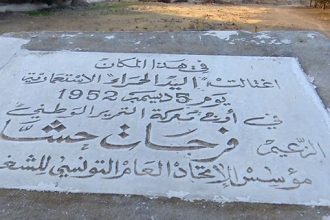 في هذا المكان
اغتالت اليد الحمراء الاستعمارية
يوم 5 ديسمبر 1952
في أوج معركة التحرير الوطني
الزعيم فرحات حشاد
مؤسس الاتحاد العام التونسي للشغل